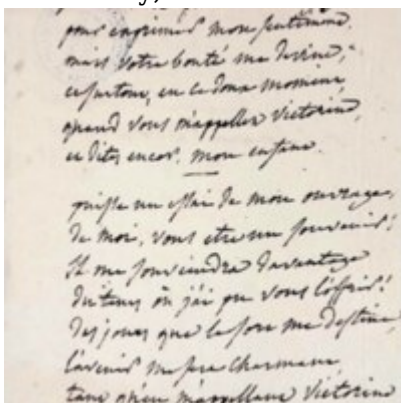 pour exprimer mon sentiment.
mais votre bonté me devine,
et surtout, en ce doux moment,
quand vous m'appellez victorine,
et dites encor: mon enfant.
puisse un essai de mon ouvrage,
de moi, vous etre un souvenir!
Il me souviendra davantage
du tems où j'ai pu vous l'offrir!
des jours que le sort me destine
l'avenir me sera charmant,
tant qu'en m'appellant victorine